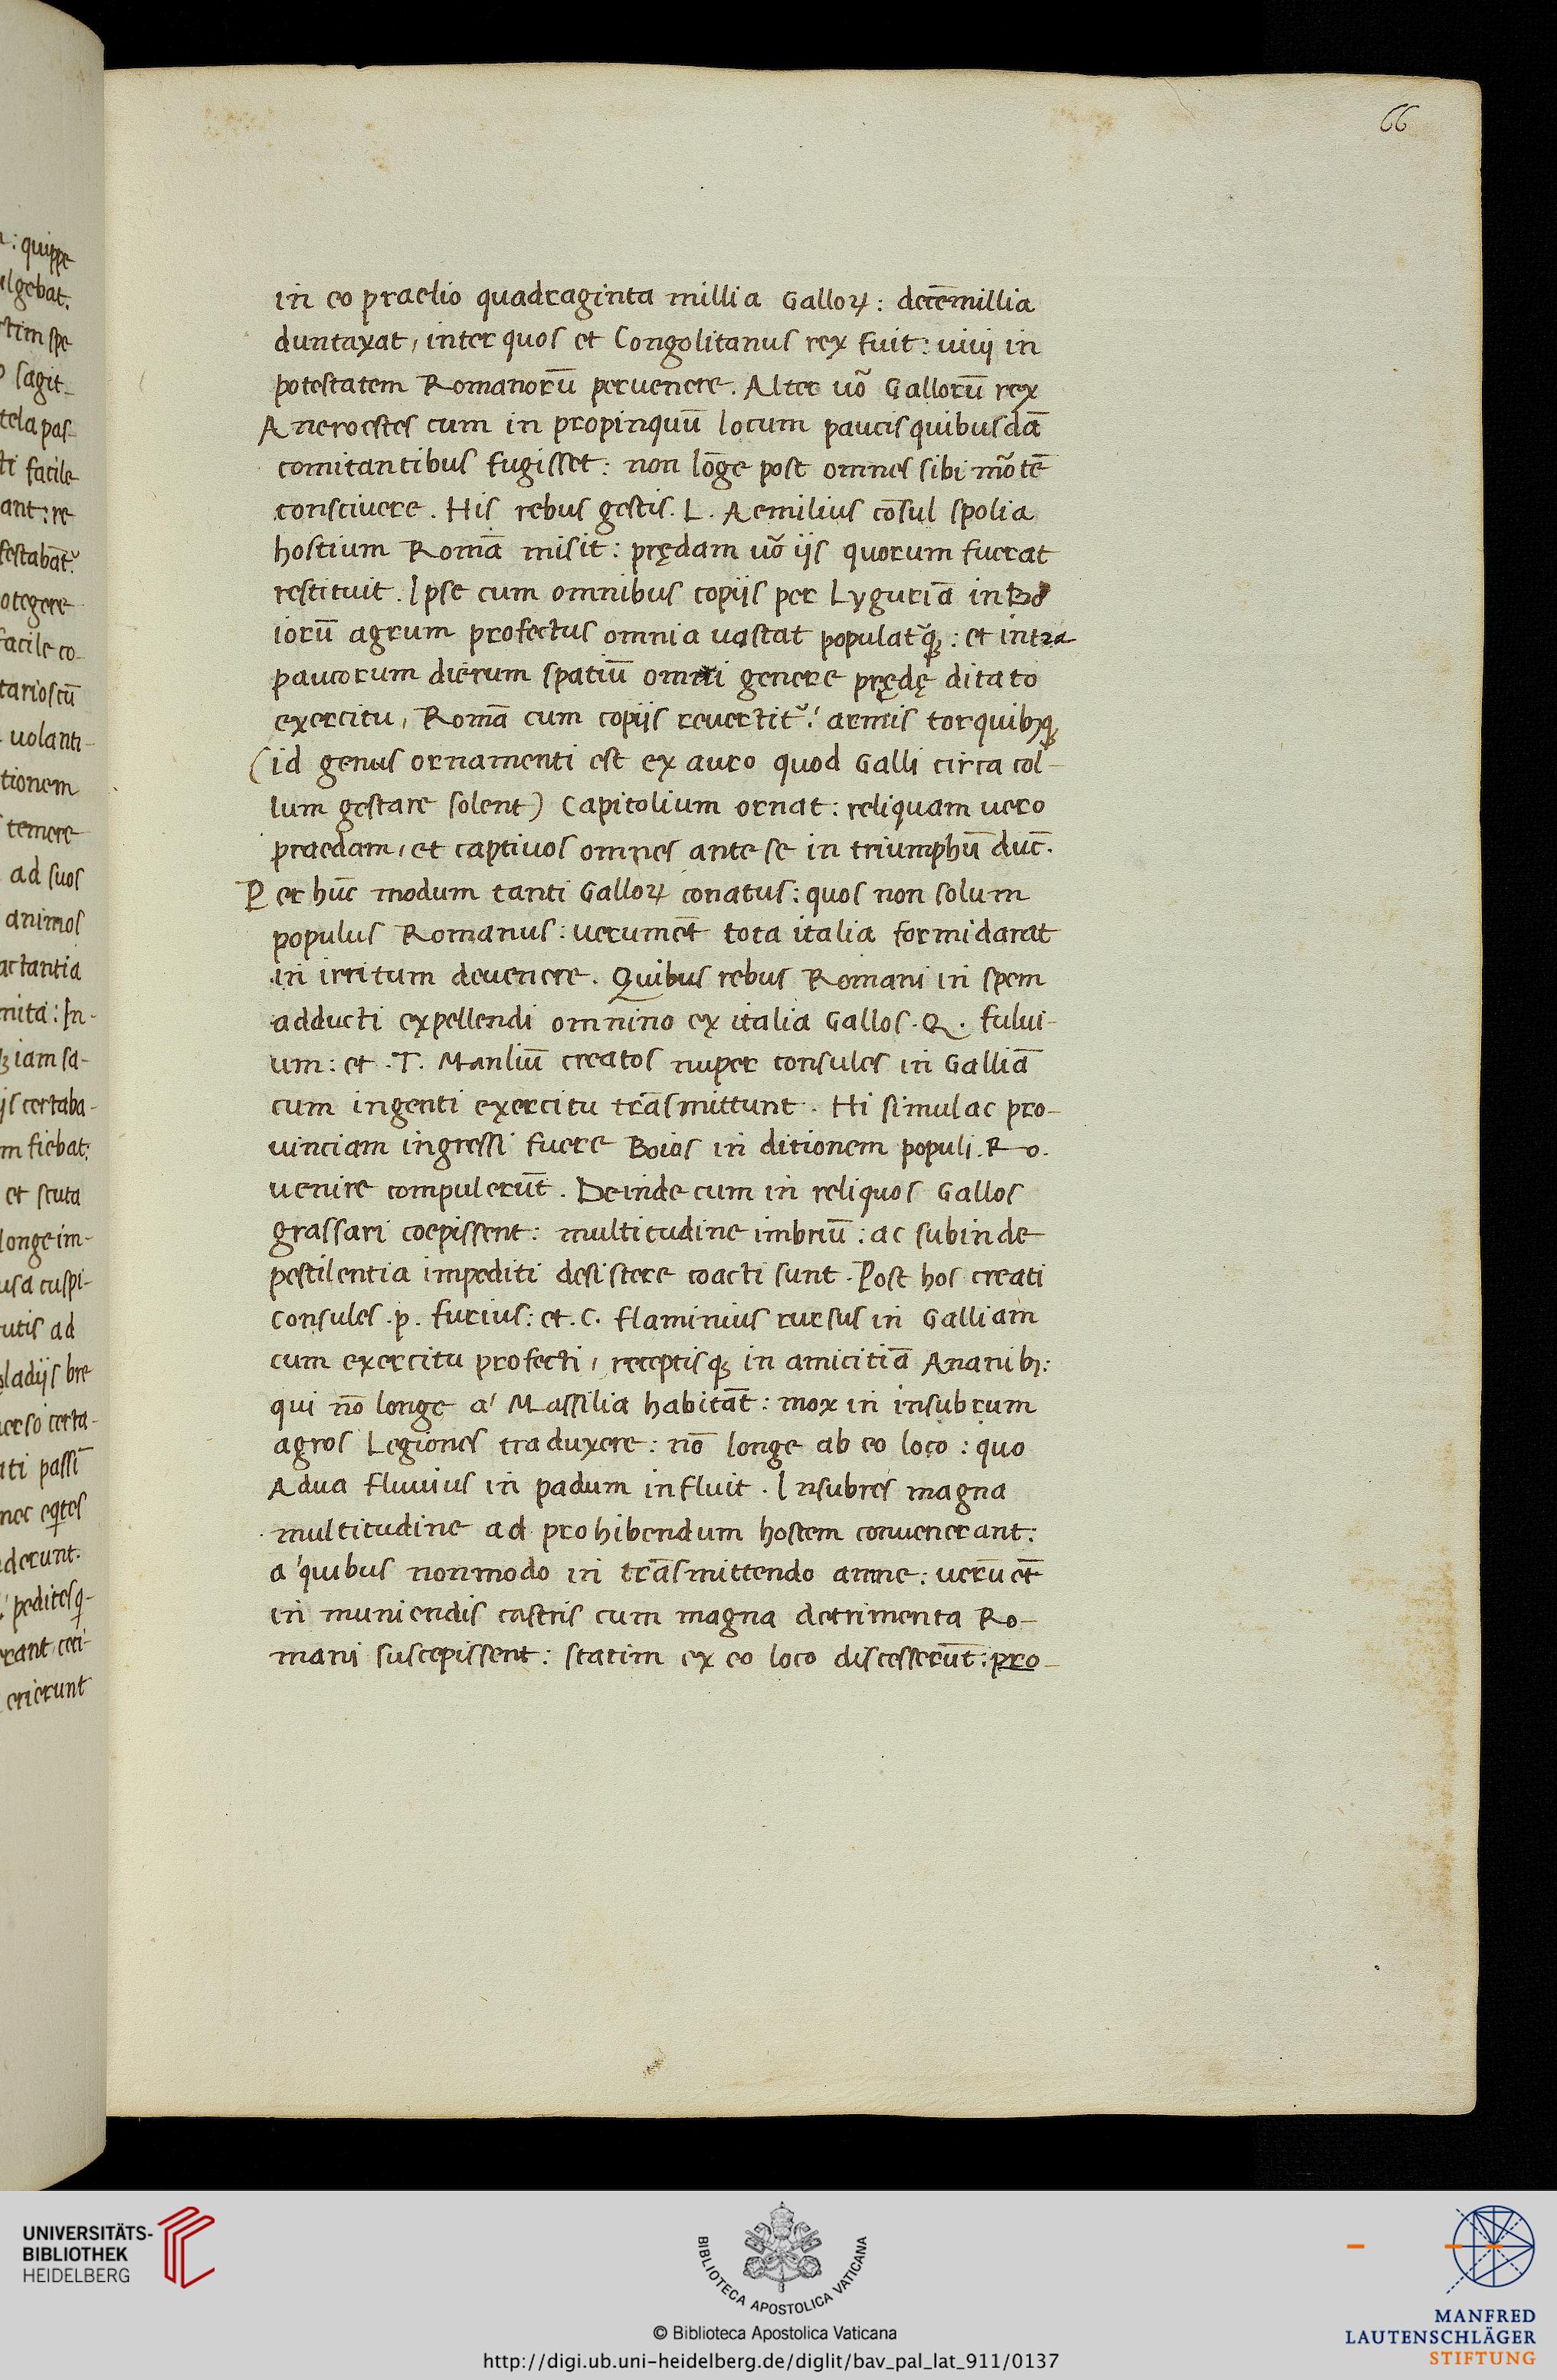 66
in eo praelio quadraginta millia Galloꝝ: decēmillia
duntaxat, inter quos et Congolitanus rex fuit: uiuj in
potestatem Romanorū peruenere. Alter uō Gallorū rex
Aneroestes cum in propinquū locum paucis quibusdā
comitantibus fugisset: non lōge post omnes sibi mōtē
consciuere. His rebus gestis. L. Aemilius cōsul spolia
hostium Romā misit: prędam uō iis quorum fuerat
restituit. Ipse cum omnibus copijs per Lyguriā in Bo
iorū agrum profectus omnia uastat populatꝰqꝫ: et intra
paucorum dierum spatiū omni genere prędę ditato
exercitu, Romā cum copijs reuertitᷣ: armis torquibꝫqꝫ
(id genus ornamenti est ex auro quod Galli circa col-
lum gestare solent) Capitolium ornat: reliquam uero
praedam, et captiuos omnes ante se in triumphū duc̄.
Per hūc modum tanti Galloꝝ conatus: quos non solum
populus Romanus: uerumēt tota italia formidarat
in irritum deuenere. Quibus rebus Romani in spem
adducti expellendi omnino ex italia Gallos. Q. fului-
um: et. T. Manliū creatos nuper consules in Galliā
cum ingenti exercitu trāsmittunt. Hi simulac pro-
uinciam ingressi fuere Boios in ditionem populi. Ro.
uenire compulerūt. Deinde cum in reliquos Gallos
grassari coepissent: multitudine imbriū: ac subinde
pestilentia impediti desistere coacti sunt. Post hos creati
consules. p. furius: et. C. flaminius rursus in Galliam
cum exercitu profecti, receptisqꝫ in amicitiā Ananibꝫ:
qui nō longe a' Massilia habitāt: mox in insubrum
agros Legiones traduxere: nō longe ab eo loco: quo
Adua fluuius in padum influit. Insubres magna
multitudine ad prohibendum hostem conuenerant:
a' quibus nonmodo in trāsmittendo amne: uerū ēt
in muniendis castris cum magna detrimenta Ro-
mani suscepissent: statim ex eo loco discesserūt: pro-
UNIVERSITÄTS-
BIBLIOTHEK
HEIDELBERG
BIBLIOTECA APOSTOLICA VATICANA
© Biblioteca Apostolica Vaticana
http://digi.ub.uni-heidelberg.de/diglit/bav_pal_lat_911/0137
MANFRED
LAUTENSCHLÄGER
STIFTUNG